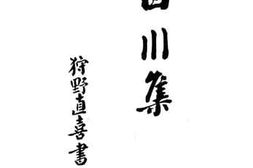 川集
狩野直喜書